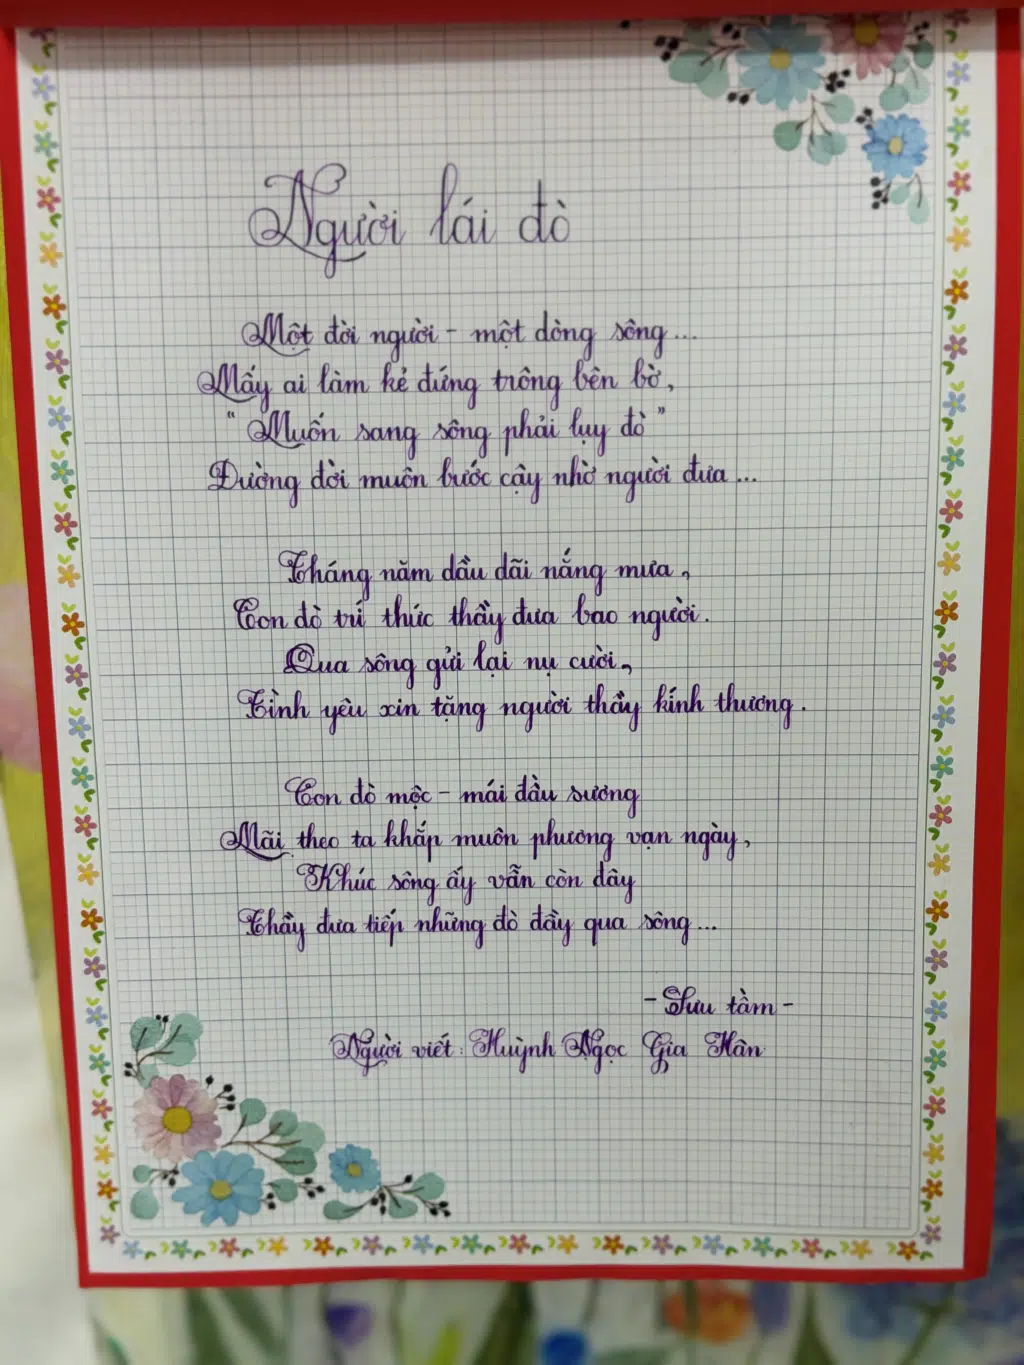 Người lái đò
Một đời người - một dòng sông...
Mấy ai làm kẻ đứng trông bên bờ,
"Muốn sang sông phải lụy đò"
Đường đời muôn bước cậy nhờ người đưa...
Tháng năm dầu dãi nắng mưa,
Con đò trí thức thầy đưa bao người.
Qua sông gửi lại nụ cười,
Tình yêu xin tặng người thầy kính thương.
Con đò mộc - mái đầu sương
Mãi theo ta khắp muôn phương vạn ngày,
Khúc sông ấy vẫn còn dây
Thầy đưa tiếp những đò đầy qua sông...
- Sưu tầm -
Người viết: Huỳnh Ngọc Gia Hân